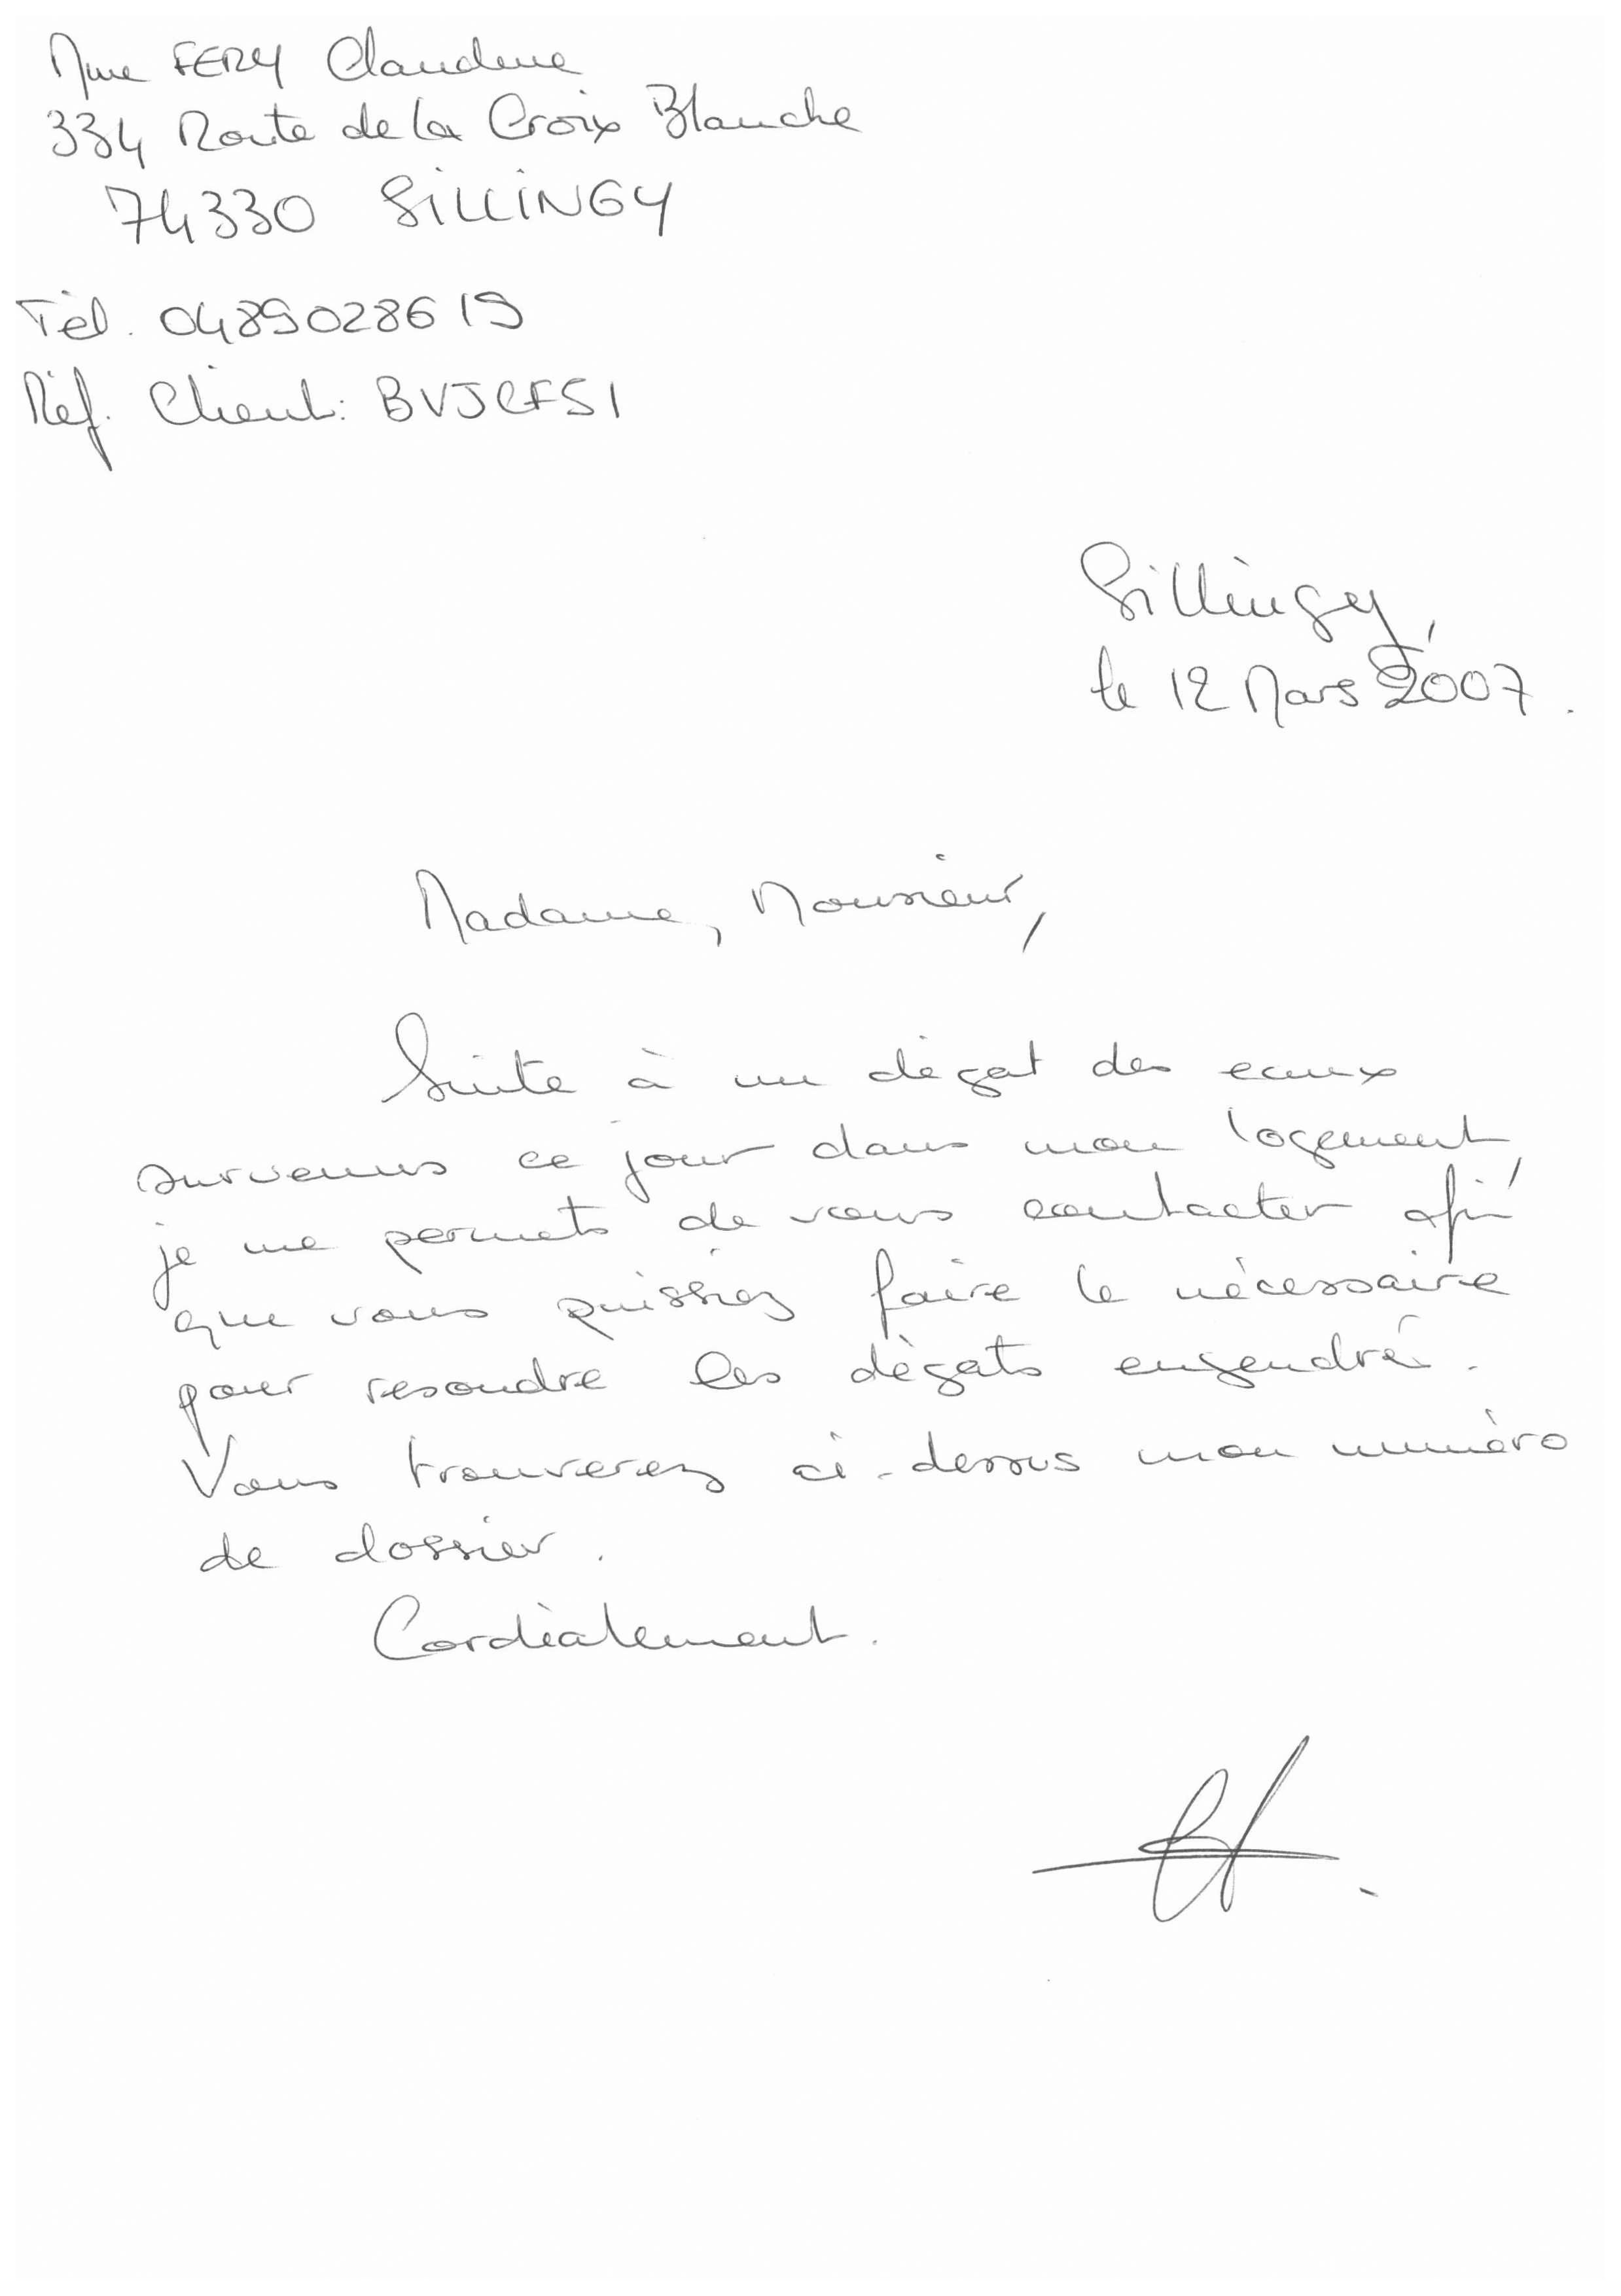 Mme FERY Claudine
334 Route de la Croix Blanche
74330 SILLINGY
Tél. 0489028619
Réf. Client: BVJCF51
Sillingy,
le 12 Mars 2007.
Madame, Monsieur,
Suite à un dégat des eaux
survenus ce jour dans mon logement,
je me permets de vous contacter afin
que vous puissiez faire le nécessaire
pour resoudre les dégats engendré.
Vous trouverez ci-dessus mon numéro
de dossier.
Cordialement.